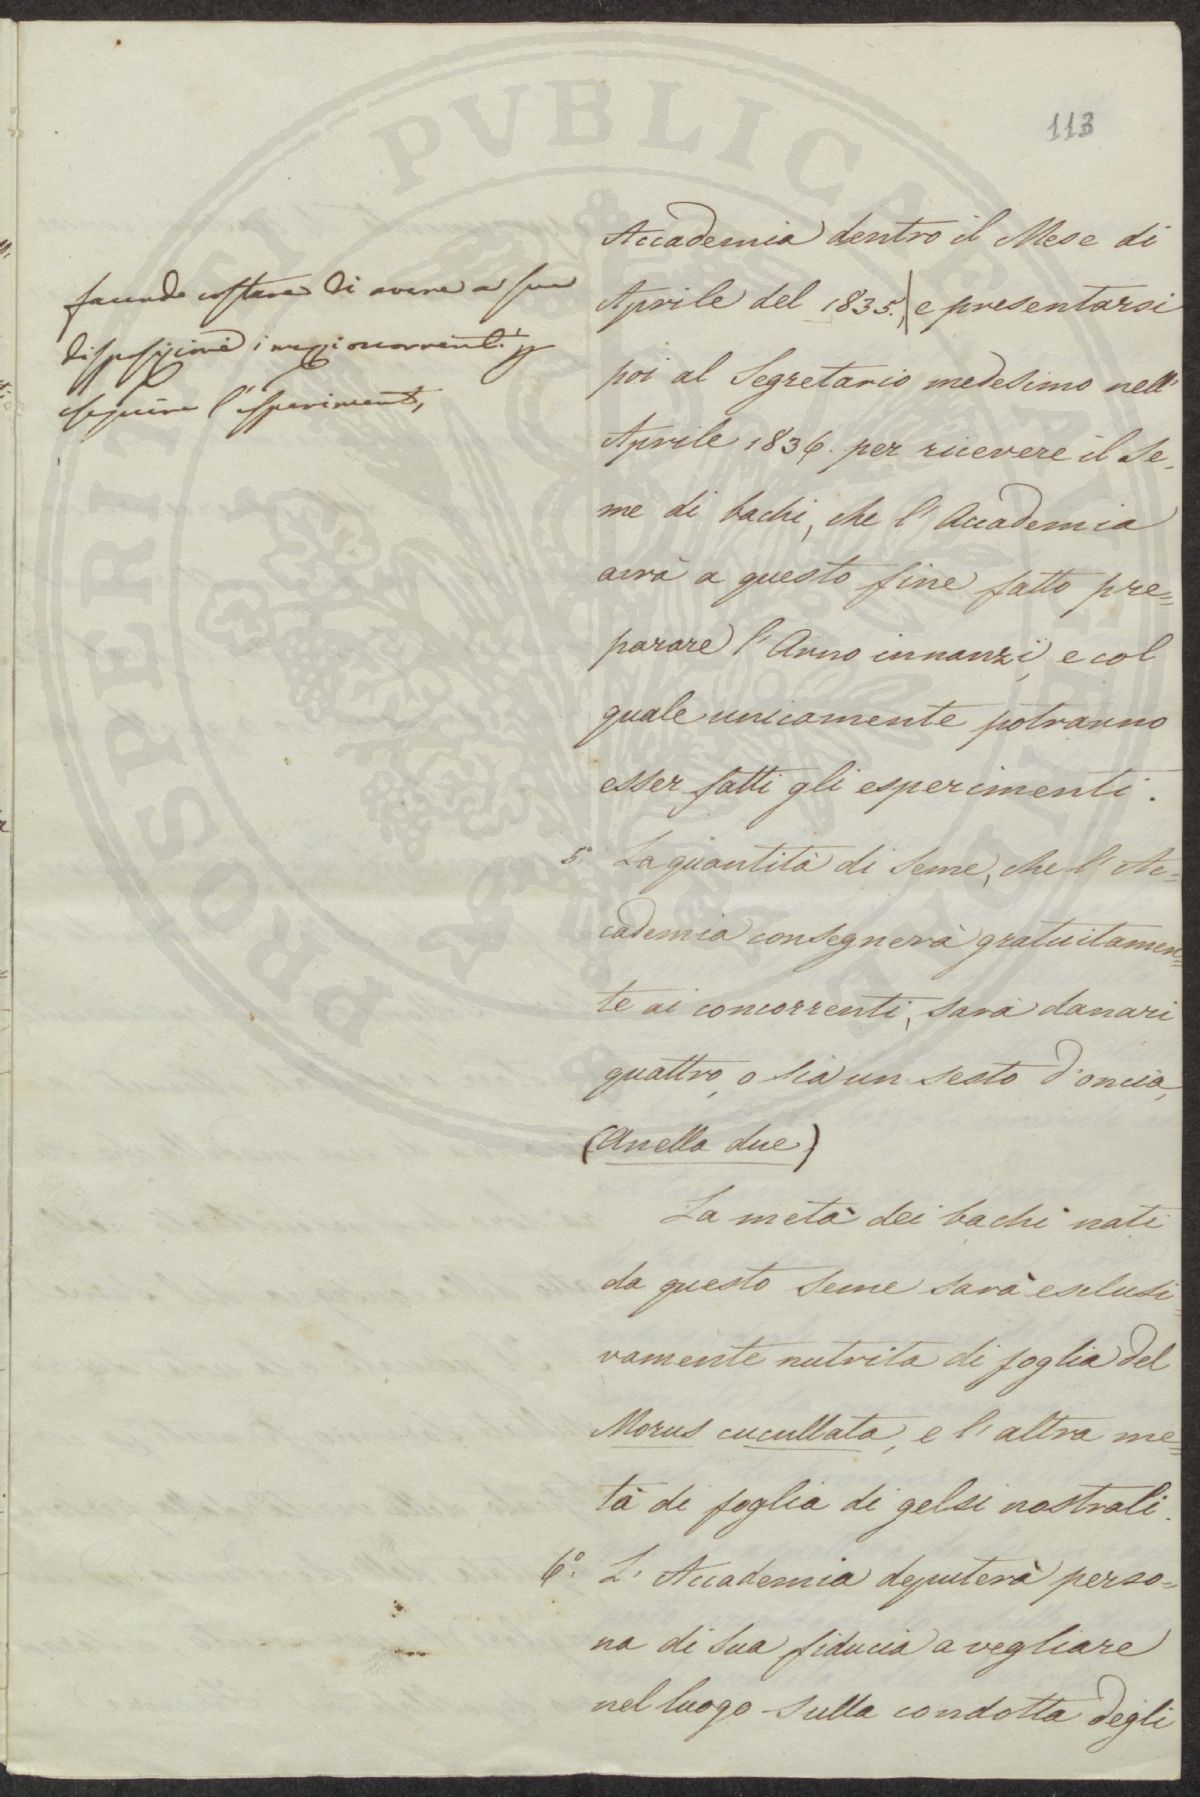 113
Accademia dentro il Mese di
Aprile del 1835. | e presentarsi
poi al Segretario medesimo nell'
Aprile 1836. per ricevere il Se=
me di bachi, che l'Accademia
avrà a questo fine fatto pre=
parare l'Anno innanzi, e col
quale unicamente potranno
esser fatti gli esperimenti.
5.° La quantità di Seme, che l'Ac=
cademia consegnerà gratuitamen=
te ai concorrenti, sarà danari
quattro, o sia un sesto d'oncia,
(Anella due)
La metà dei bachi nati
da questo seme sarà esclusi=
vamente nutrita di foglia del
Morus cucullata, e l'altra me=
tà di foglia di gelsi nostrali.
6.° L'Accademia deputerà perso=
na di sua fiducia a vegliare
nel luogo sulla condotta degli
facendo costare di avere a sua
disposizione i mezzi occorrenti p
eseguire l'esperimento,
PROSPERITATI PVBLICAE AVGENDAE